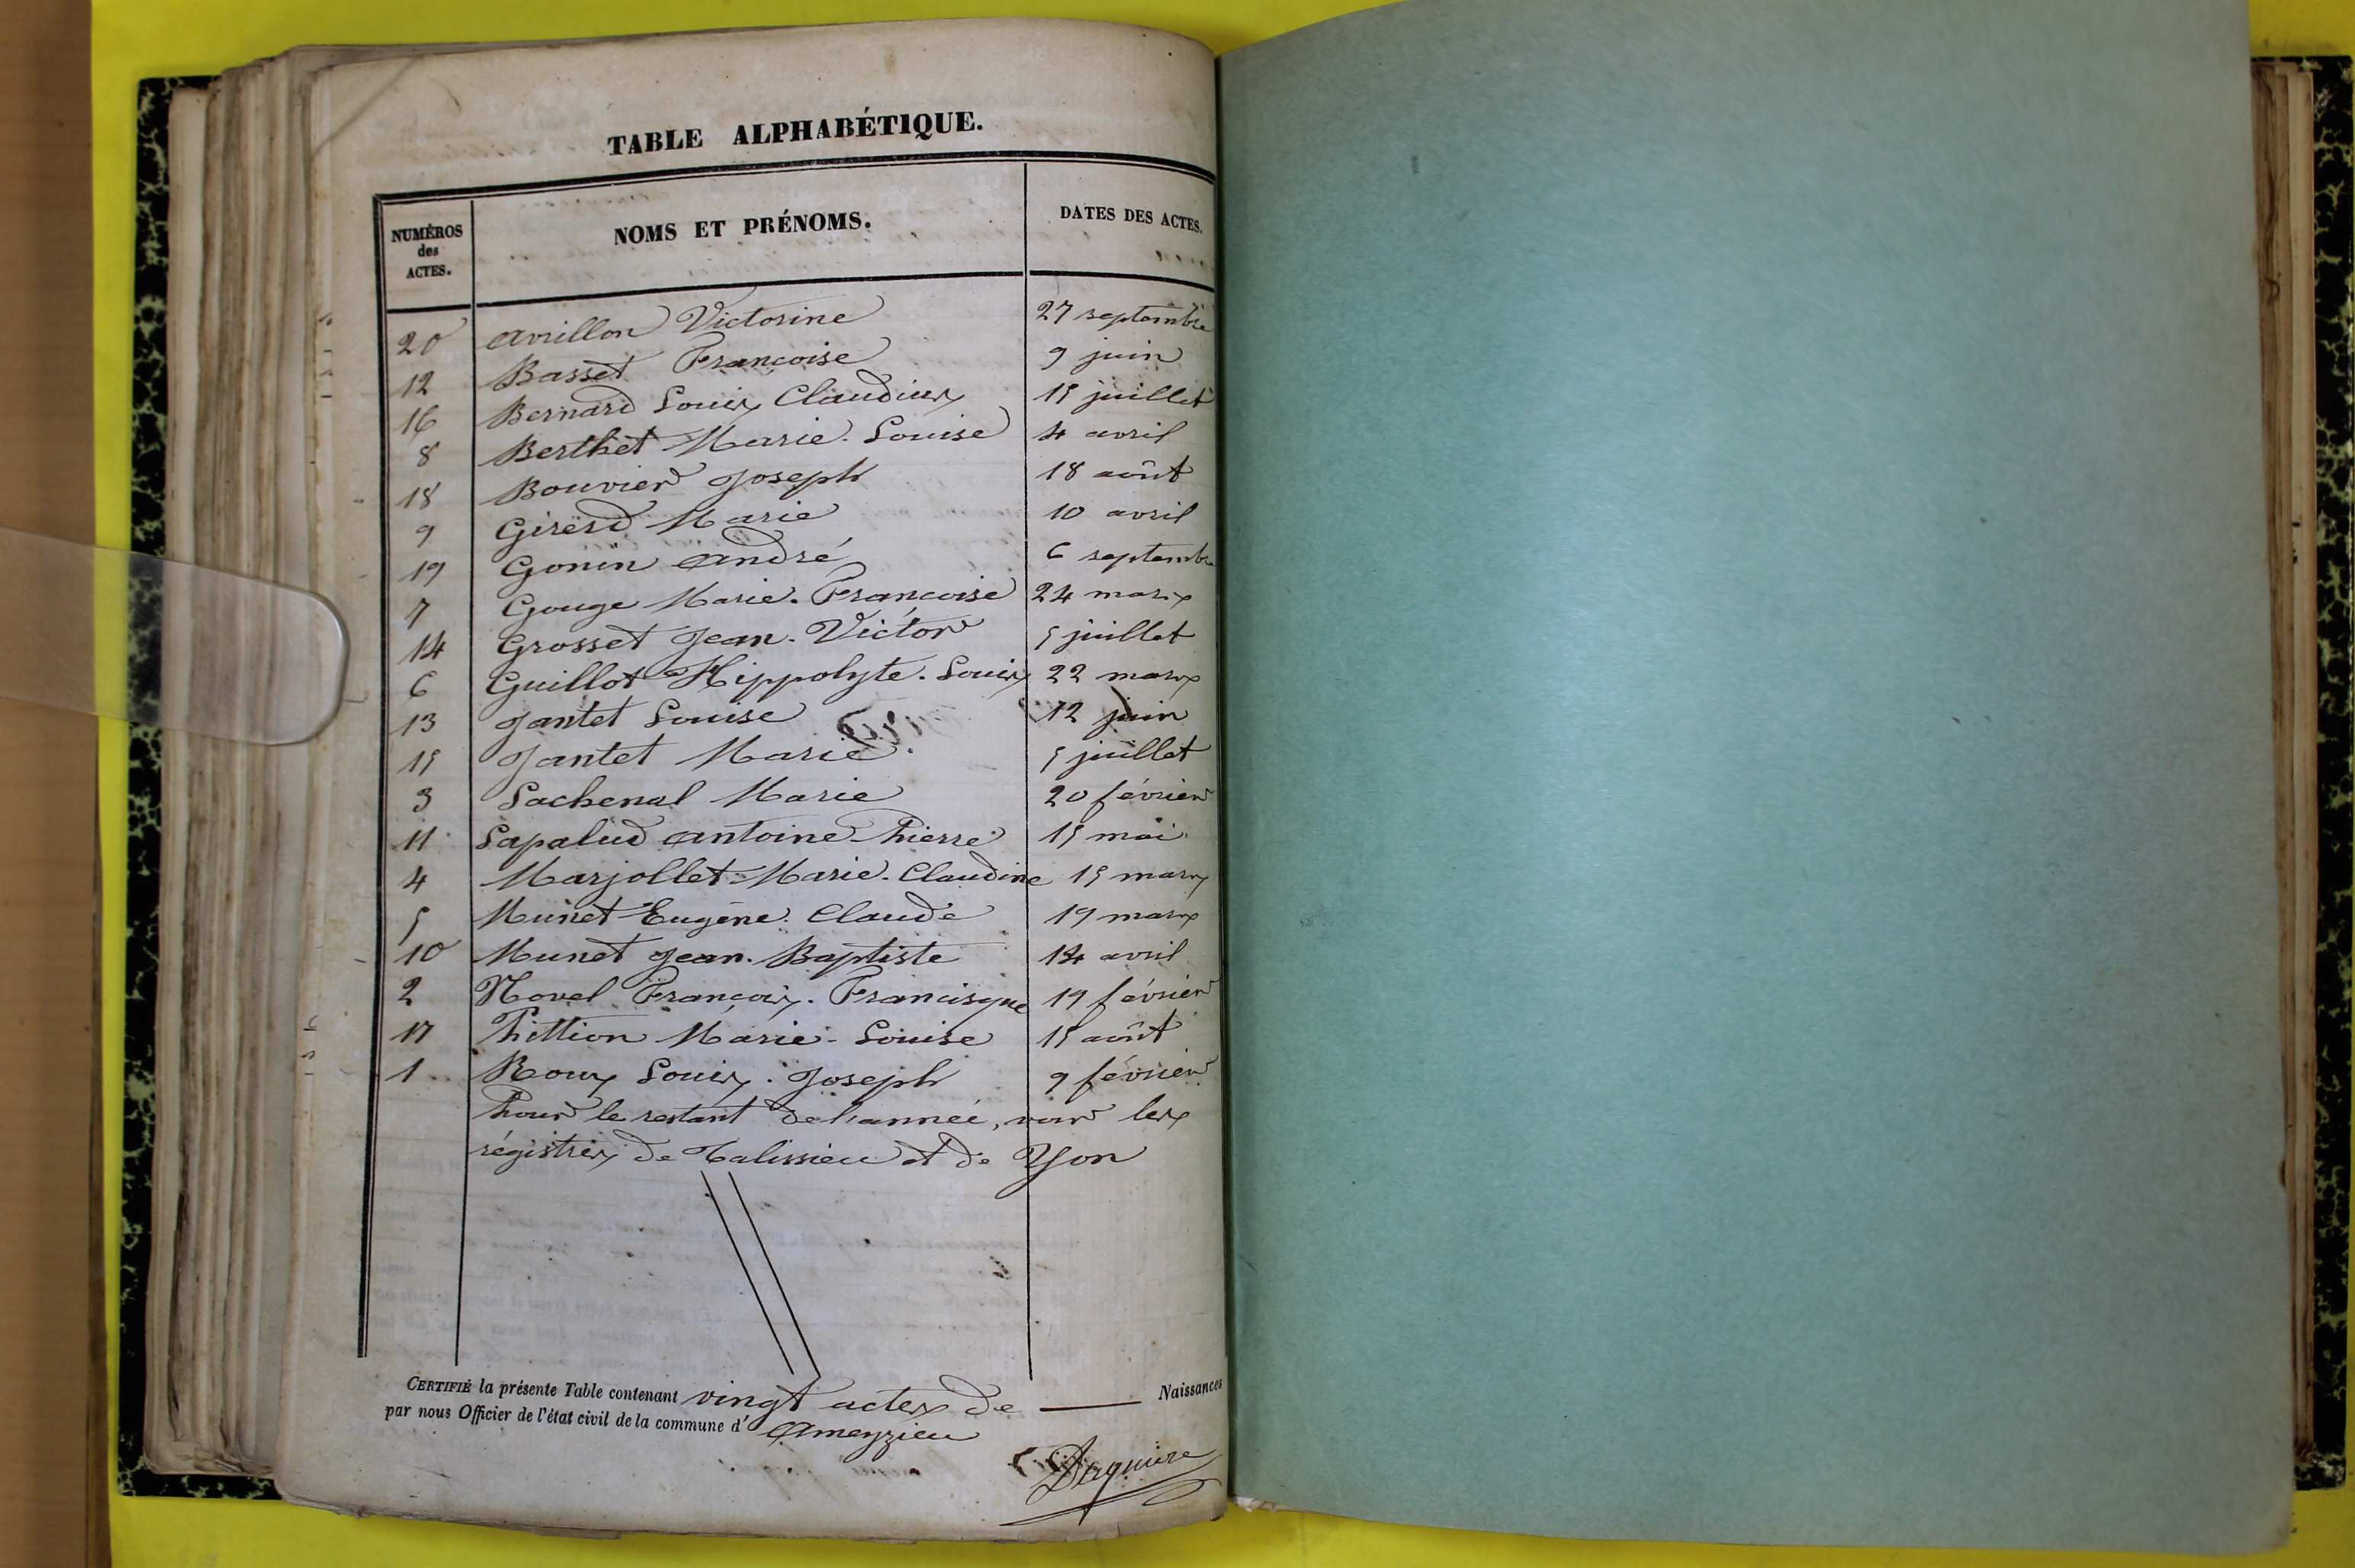 TABLE ALPHABÉTIQUE.
NUMÉROS des ACTES. NOMS ET PRÉNOMS. DATES DES ACTES.
20 Avrillon Victorine 27 septembre
12 Basset Françoise 9 juin
16 Bernard Louis Claudius 15 juillet
8 Berthet Marie-Louise 4 avril
18 Bouvier Joseph 18 août
9 Girerd Marie 10 avril
19 Gonin André 6 septembre
7 Gouge Marie-Françoise 24 mars
14 Grosset Jean-Victor 5 juillet
6 Guillot Hippolyte-Louis 22 mars
13 Jantet Louise 12 juin
15 Jantet Marie 5 juillet
3 Lachenal Marie 20 février
11 Lapalud Antoine Pierre 15 mai
4 Marjollet Marie-Claudine 15 mars
5 Munet Eugène Claude 19 mars
10 Munet Jean-Baptiste 14 avril
2 Novel François-Francisque 19 février
17 Pittion Marie-Louise 15 août
1 Roux Louis-Joseph 9 février
Pour le restant de l'année, voir les
régistres de Talissieu et de Yon
CERTIFIÉ la présente Table contenant vingt actes de Naissances
par nous Officier de l'état civil de la commune d'Ameyzieu